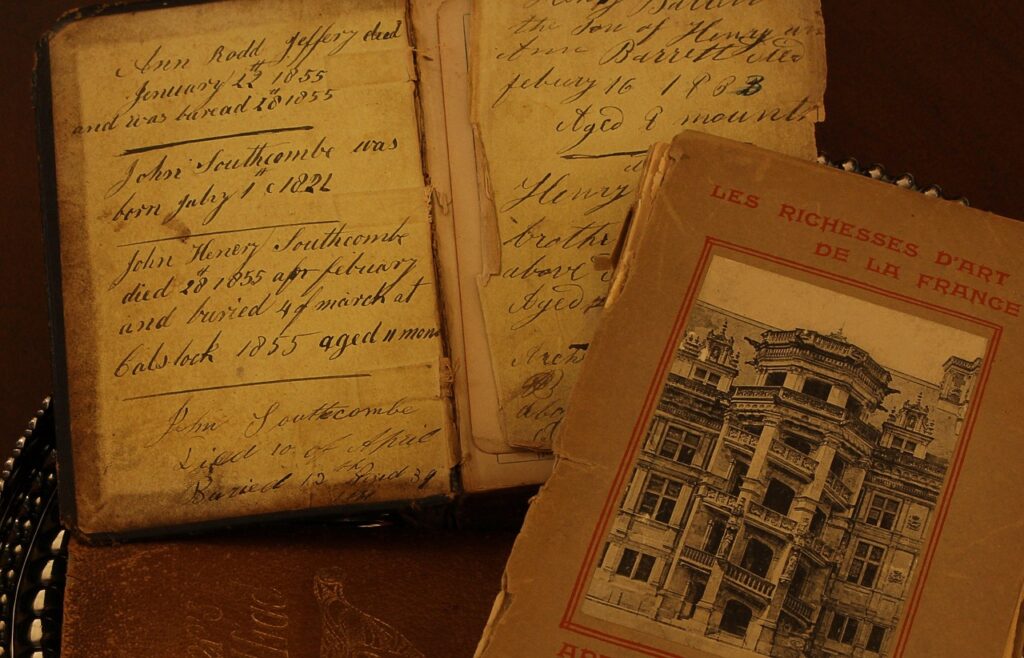 Ann Rodd Jeffery died
Jenuary 22th 1855
and was buread 28 1855
John Southcombe was
born July 1st 1821
John Henery Southcombe
died 28th 1855 febuary
and buried 4 of march at
Calstock 1855 aged 11 mon
John Southcombe
Died 10 of April
Buried 13th Aged 39
Henry Barrett
the Son of Henry an
Ann Barrett died
febury 16 1883
Aged 8 mounth
Henry
brothr
above
Aged
abo
LES RICHESSES D'ART
DE LA FRANCE